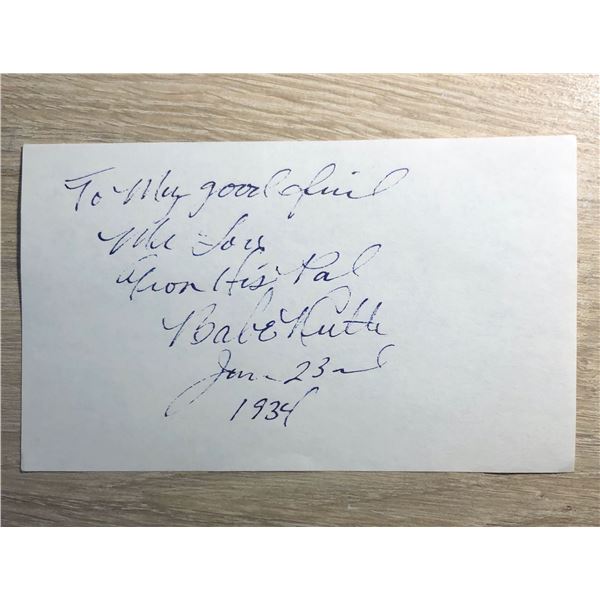 To My good friend
Mr Lou
From His Pal
Babe Ruth
Jan. 23rd
1934